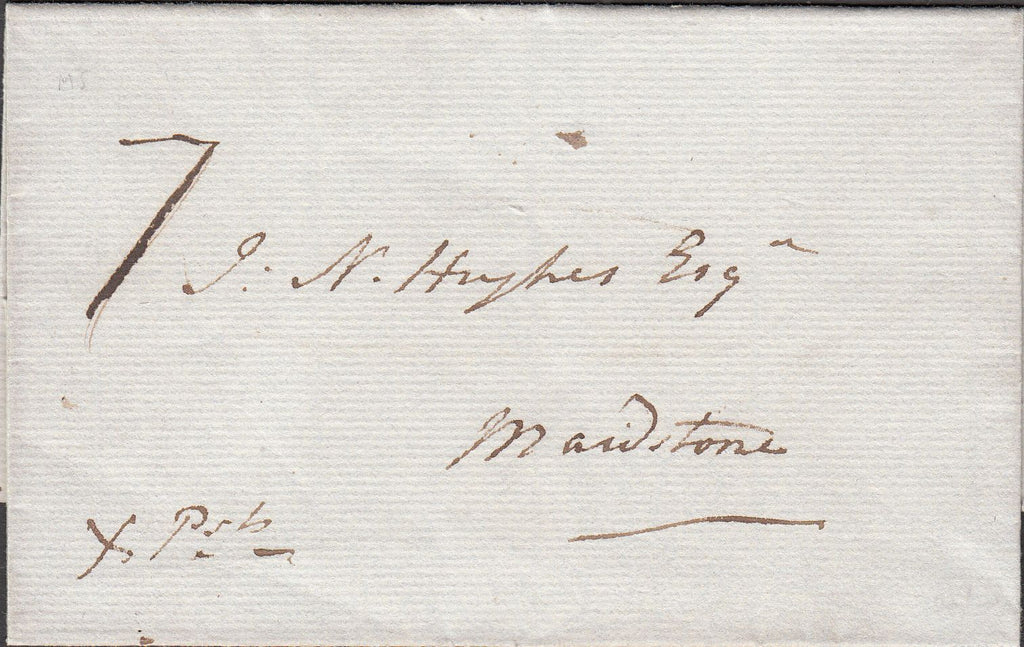 MS
7
J. N. Hughes Esqr
Maidstone
X Post